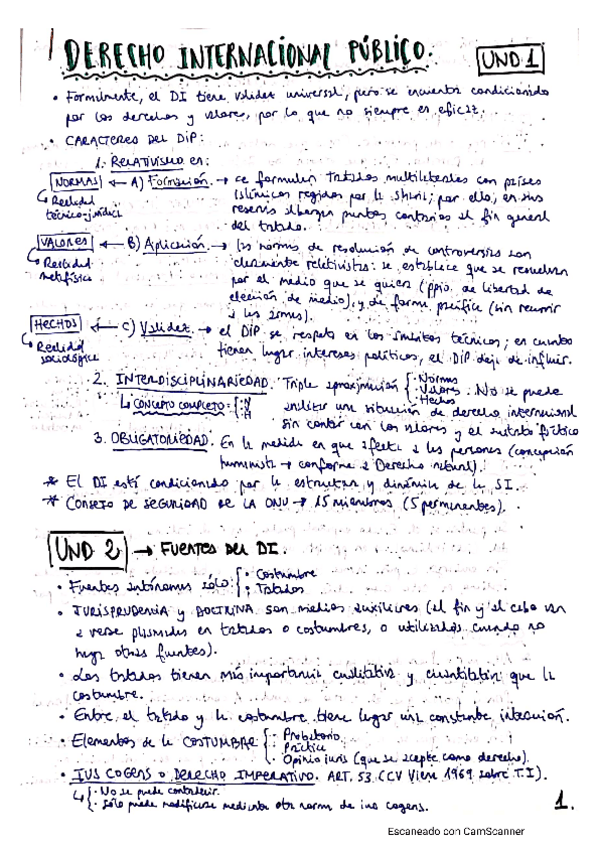 DERECHO INTERNACIONAL PÚBLICO. UND 1
• Formalmente, el DI tiene validez universal, pero se encuentra condicionado
por los derechos y valores, por lo que no siempre es eficaz.
• CARACTERES DEL DIP:
1. RELATIVISMO en:
NORMAS ← A) Formación. → se formulan tratados multilaterales con países
↳ Realidad técnico-jurídica
islámicos regidos por la sharia; por ello, en sus
reservas albergan puntos contrarios al fin general
del tratado.
VALORES ← B) Aplicación. → las normas de resolución de controversias son
↳ Realidad metafísica
claramente relativistas: se establece que se resuelvan
por el medio que se quiera (ppio. de libertad de
elección de medio), y de forma pacífica (sin recurrir
a las armas).
HECHOS ← C) Validez. → el DIP se respeta en los ámbitos técnicos; en cuanto
↳ Realidad sociológica
tienen lugar intereses políticos, el DIP deja de influir.
2. INTERDISCIPLINARIEDAD. Triple aproximación {· Normas · Valores · Hechos. No se puede
↳ CONCEPTO COMPLETO: {· N · V · H
analizar una situación de derecho internacional
sin contar con los valores y el sustrato fáctico
3. OBLIGATORIEDAD. En la medida en que afecta a las personas (concepción
humanista → conforme a Derecho natural).
* El DI está condicionado por la estructura y dinámica de la SI.
* CONSEJO DE SEGURIDAD DE LA ONU → 15 miembros (5 permanentes).
UND 2 → FUENTES DEL DI.
• Fuentes autónomas sólo: {· Costumbre · Tratados
• JURISPRUDENCIA y DOCTRINA son medios auxiliares (al fin y al cabo van
a verse plasmados en tratados o costumbres, o utilizados cuando no
haya otras fuentes).
• Los tratados tienen más importancia cualitativa y cuantitativa que la
costumbre.
• Entre el tratado y la costumbre tiene lugar una constante interacción.
• Elementos de la COSTUMBRE {· Probatorio. · Práctica · Opinio iuris (que se acepte como derecho).
• IUS COGENS O DERECHO IMPERATIVO. ART. 53 (CV Viena 1969 sobre T.I).
↳ {· No se puede contradecir.
· Sólo puede modificarse mediante otra norma de ius cogens.
1.
Escaneado con CamScanner